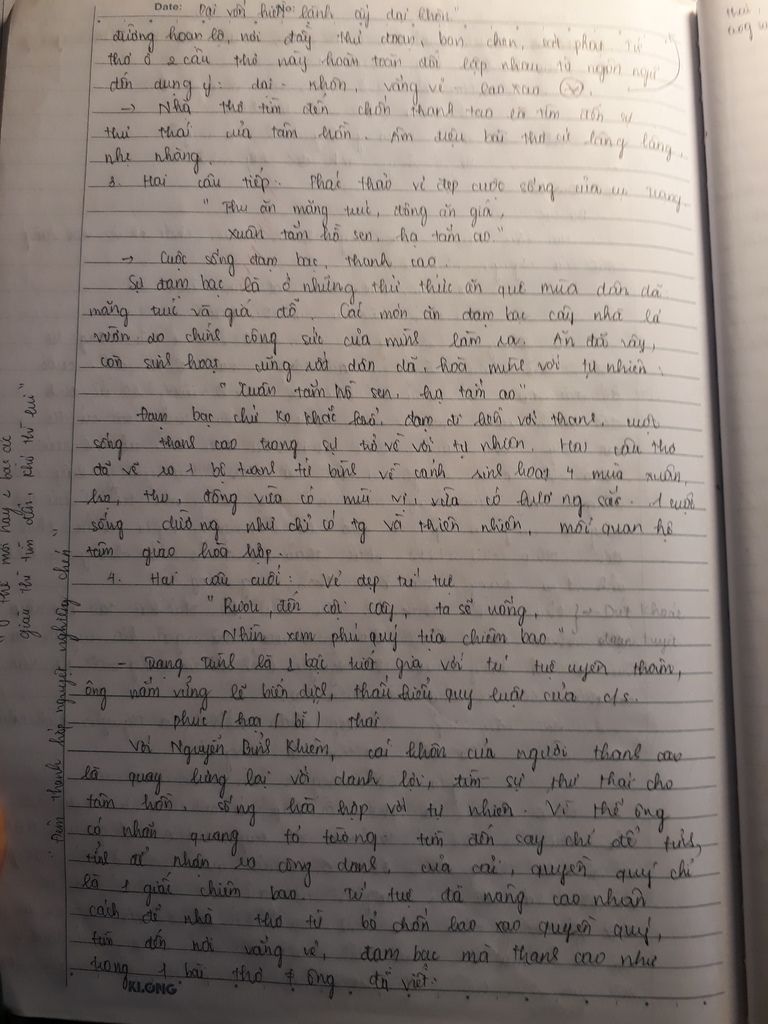 Date: No:
Lại với hiền lành ấy dại khôn."
đường hoạn lộ, nơi đầy thủ đoạn, bon chen,
thơ ở 2 câu thơ này hoàn toàn đối lập nhau từ ngôn ngữ
đến dụng ý: dại - khôn, vắng vẻ - lao xao
→ Nhà thơ tìm đến chốn thanh tao là tìm đến sự
thư thái của tâm hồn. Âm điệu bài thơ cứ lâng lâng,
nhẹ nhàng.
3. Hai câu tiếp: Phác thảo vẻ đẹp cuộc sống của
"Thu ăn măng trúc, đông ăn giá,
Xuân tắm hồ sen, hạ tắm ao."
→ Cuộc sống đạm bạc, thanh cao.
Sự đạm bạc là ở những thứ thức ăn quê mùa dân dã
măng trúc và giá đỗ. Các món ăn đạm bạc cây nhà lá
vườn do chính công sức của mình làm ra. Ăn đã vậy,
còn sinh hoạt cũng rất dân dã, hoà mình với tự nhiên:
"Xuân tắm hồ sen, hạ tắm ao"
Đạm bạc chứ ko khắc khổ, đạm đi liền với thanh, cuộc
sống thanh cao trong sự trở về với tự nhiên. Hai câu thơ
đã vẽ ra 1 bộ tranh tứ bình về cảnh sinh hoạt 4 mùa xuân,
hạ, thu, đông vừa có mùi vị, vừa có hương sắc. 1 cuộc
sống dường như chỉ có tg và thiên nhiên, mối quan hệ
tâm giao hoà hợp.
4. Hai câu cuối: Vẻ đẹp trí tuệ
"Rượu, đến cội cây, ta sẽ uống,
Nhìn xem phú quý tựa chiêm bao."
- Trạng Trình là 1 bậc triết gia với trí tuệ uyên thâm,
ông nắm vững lẽ biến dịch, thấu hiểu quy luật của c/s.
phúc / hoạ / bĩ / thái
Với Nguyễn Bỉnh Khiêm, cái khôn của người thanh cao
là quay lưng lại với danh lợi, tìm sự thư thái cho
tâm hồn, sống hoà hợp với tự nhiên. Vì thế ông
có nhãn quang tỏ tường tìm đến say chỉ để tỉnh,
tỉnh để nhận ra công danh, của cải, quyền quý chỉ
là 1 giấc chiêm bao. Trí tuệ đã nâng cao nhân
cách để nhà thơ từ bỏ chốn lao xao quyền quý,
tìm đến nơi vắng vẻ, đạm bạc mà thanh cao như
trong 1 bài thơ # ông đã viết:
KLONG